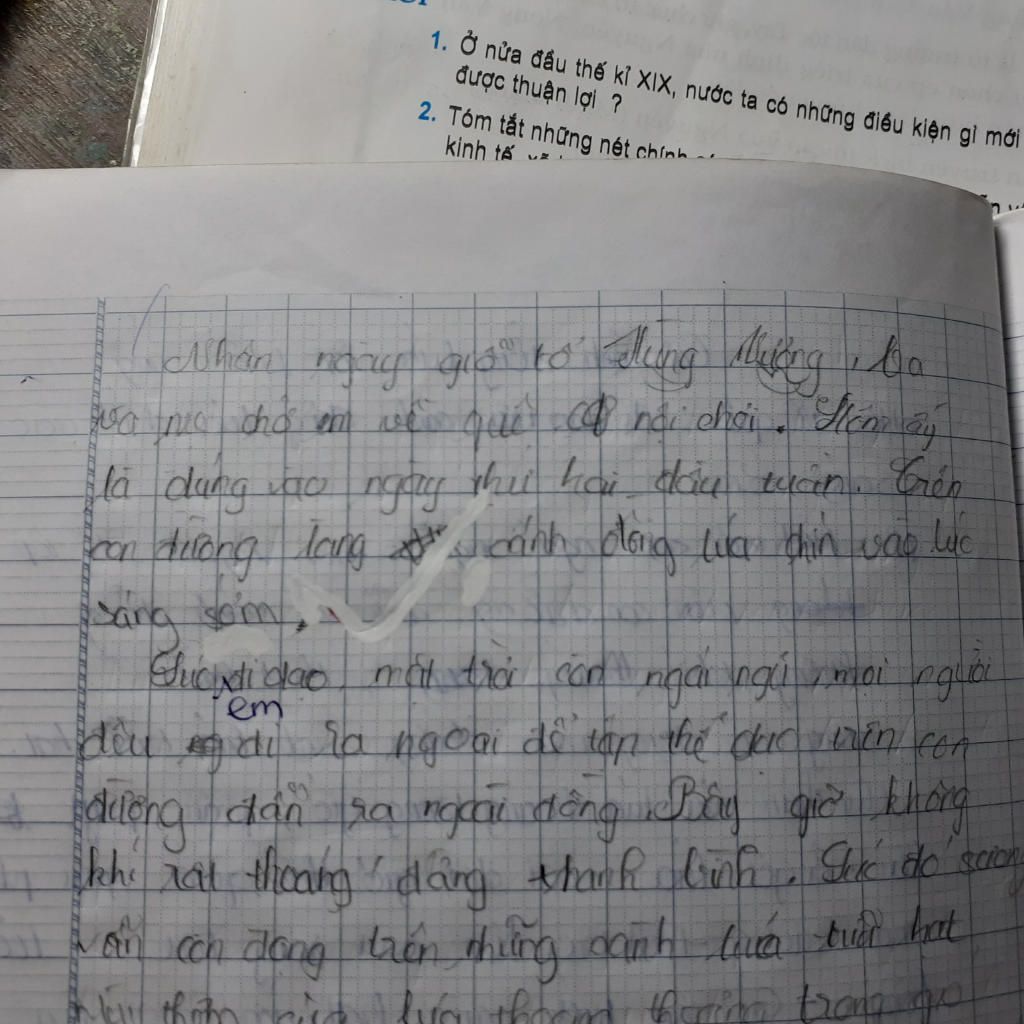 1. Ở nửa đầu thế kỉ XIX, nước ta có những điều kiện gì mới
được thuận lợi ?
2. Tóm tắt những nét chính
kinh tế,
Nhân ngày giỗ tổ Hùng Vương, ba
và mẹ chở em về quê nội chơi. Hôm ấy
là đúng vào ngày thứ hai đầu tuần. Trên
con đường làng cánh đồng lúa chín vào lúc
sáng sớm.
Lúc đi dạo, mặt trời còn ngái ngủ, mọi người
em
đều đi ra ngoài để tập thể dục trên con
đường dẫn ra ngoài đồng. Bây giờ không
khí rất thoáng đãng thanh bình. Lúc đó sương
vẫn còn đọng trên những cành lúa
thơm của lúa thoang thoảng trong